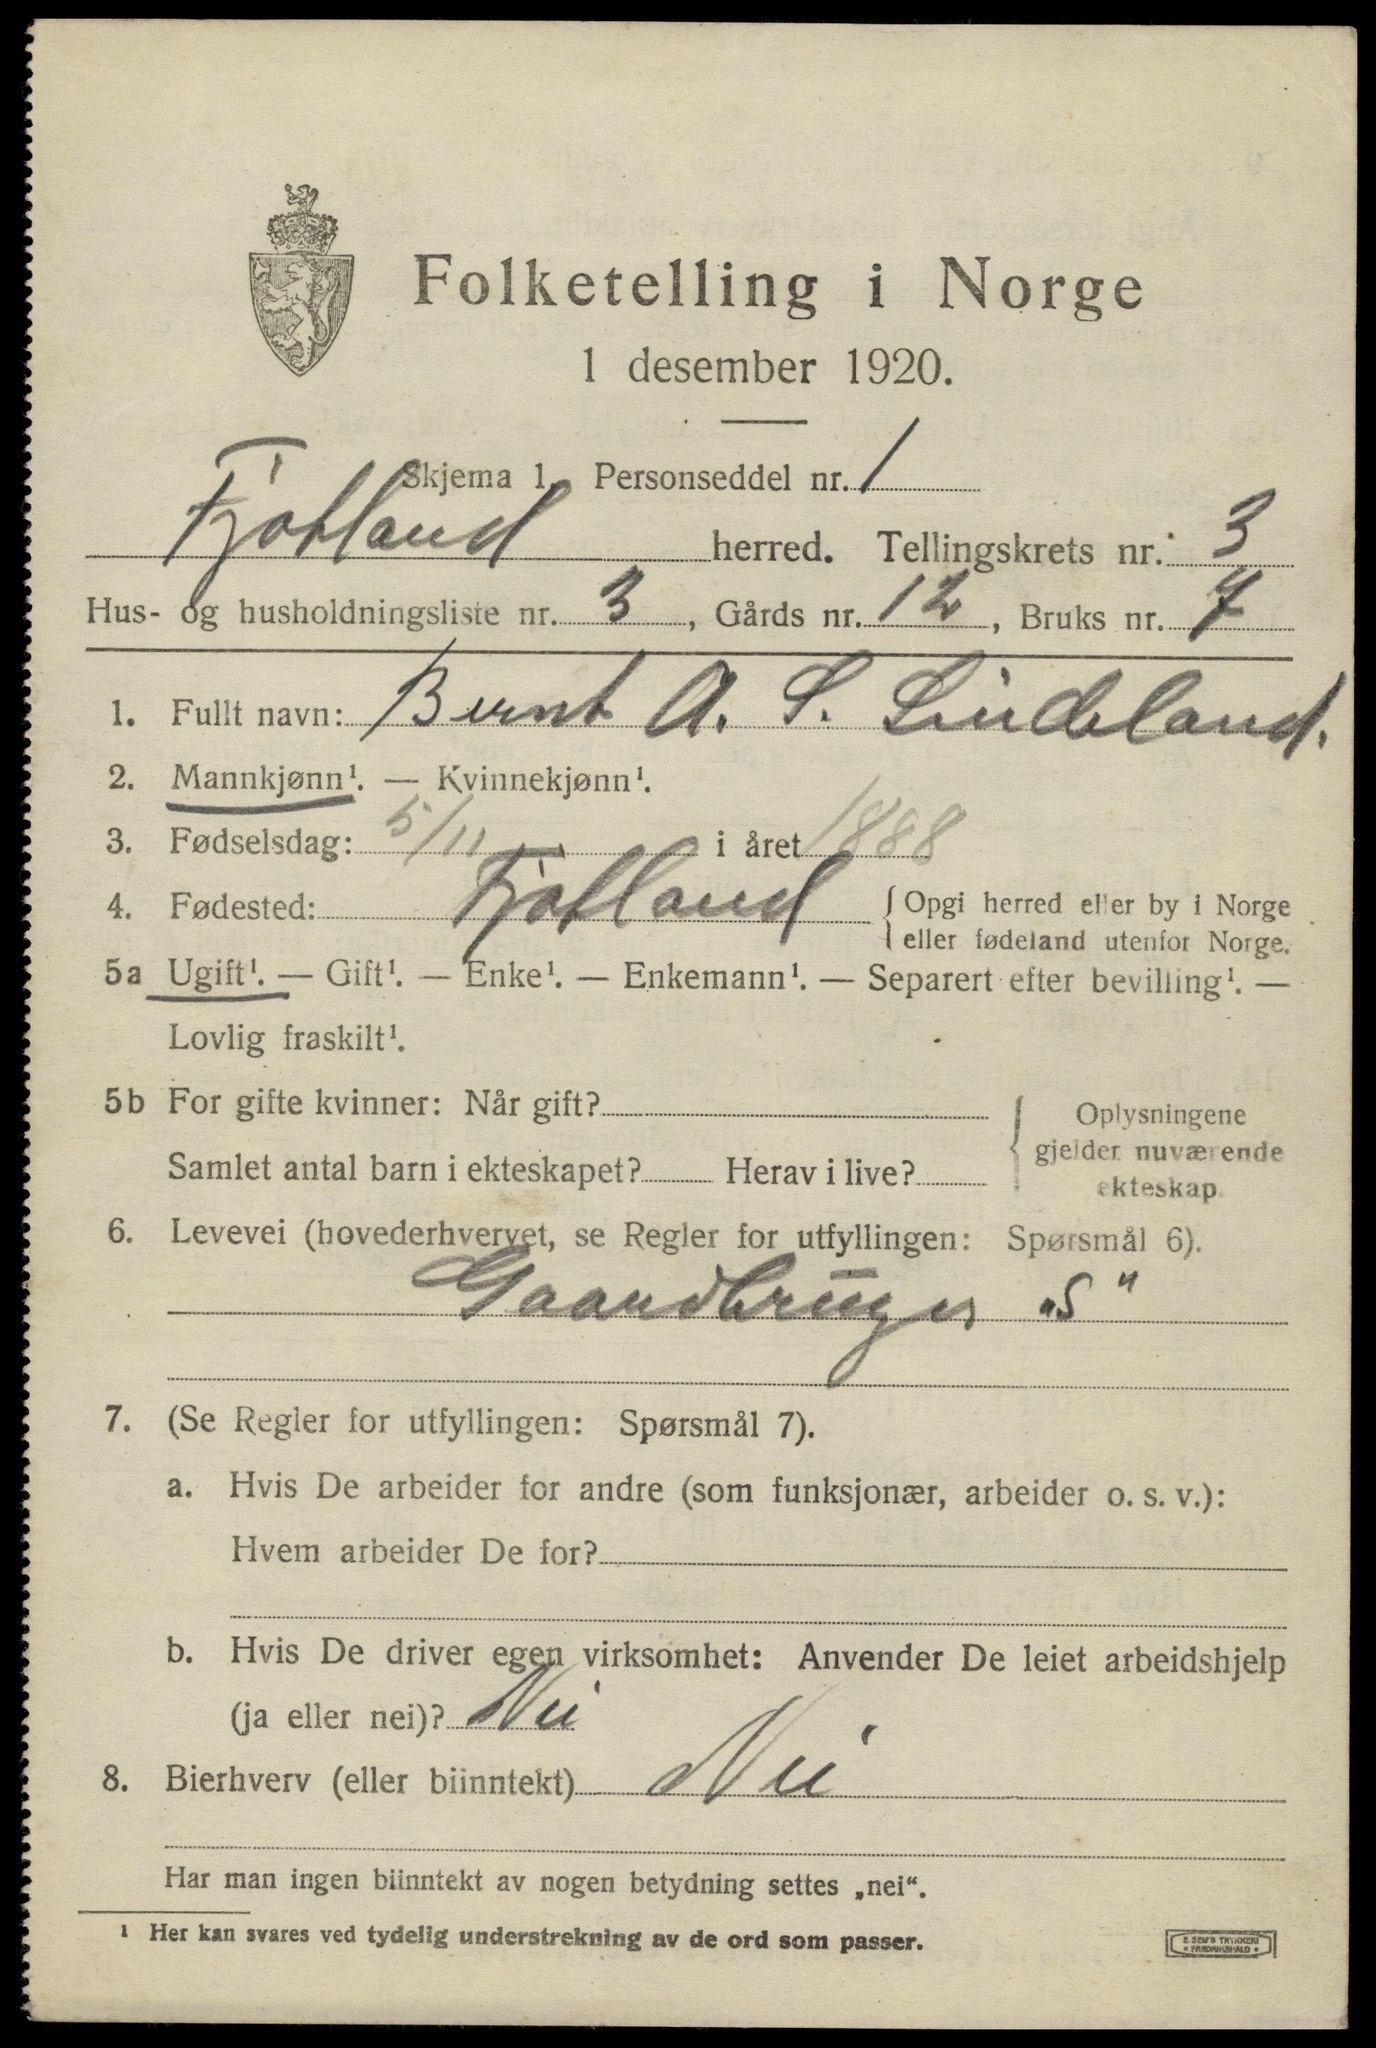 Folketelling i Norge
1 desember 1920.
Skjema 1. Personseddel nr. 1
Fjotland herred. Tellingskrets nr. 3
Hus- og husholdningsliste nr. 3, Gårds nr. 12, Bruks nr. 7
1. Fullt navn: Bernt A. S. Lindeland.
2. Mannkjønn¹. — Kvinnekjønn¹.
3. Fødselsdag: 5/11 i året 1888
4. Fødested: Fjotland { Opgi herred eller by i Norge
eller fødeland utenfor Norge.
5a Ugift¹. — Gift¹. — Enke¹. — Enkemann¹. — Separert efter bevilling¹. —
Lovlig fraskilt¹.
5b For gifte kvinner: Når gift?
Samlet antal barn i ekteskapet? Herav i live?
{ Oplysningene
gjelder nuværende
ekteskap.
6. Levevei (hovederhvervet, se Regler for utfyllingen: Spørsmål 6).
Gaardbruger „S"
7. (Se Regler for utfyllingen: Spørsmål 7).
a. Hvis De arbeider for andre (som funksjonær, arbeider o. s. v.):
Hvem arbeider De for?
b. Hvis De driver egen virksomhet: Anvender De leiet arbeidshjelp
(ja eller nei)? Nei
8. Bierhverv (eller biinntekt) Nei
Har man ingen biinntekt av nogen betydning settes „nei“.
¹ Her kan svares ved tydelig understrekning av de ord som passer.
E. SEM'S TRYKKERI
• FREDRIKSHALD •